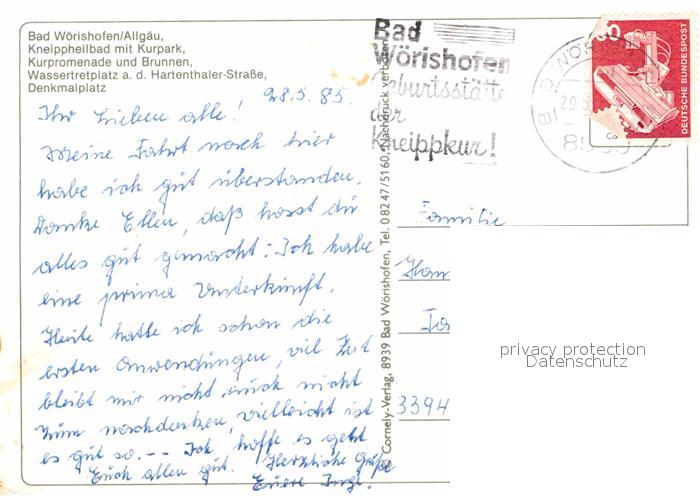 Bad Wörishofen/Allgäu,
Kneippheilbad mit Kurpark,
Kurpromenade und Brunnen,
Wassertretplatz a. d. Hartenthaler-Straße,
Denkmalplatz
28.5.85.
Ihr Lieben alle!
Meine Fahrt nach hier
habe ich gut überstanden.
Danke Ellen, daß hast du
alles gut gemacht! Ich habe
eine prima Unterkunft.
Heute hatte ich schon die
ersten Anwendungen, viel Zeit
bleibt mir nicht, auch nicht
zum nachdenken, vielleicht ist
es gut so. -- Ich hoffe es geht
Euch allen gut. Herzliche Grüße
Euere Inge.
© Cornely-Verlag, 8939 Bad Wörishofen, Tel. 08247/5160, Nachdruck verboten
Bad
Wörishofen
Geburtsstätte
der
Kneippkur!
60
DEUTSCHE BUNDESPOST
Familie
Han
3394
privacy protection
Datenschutz